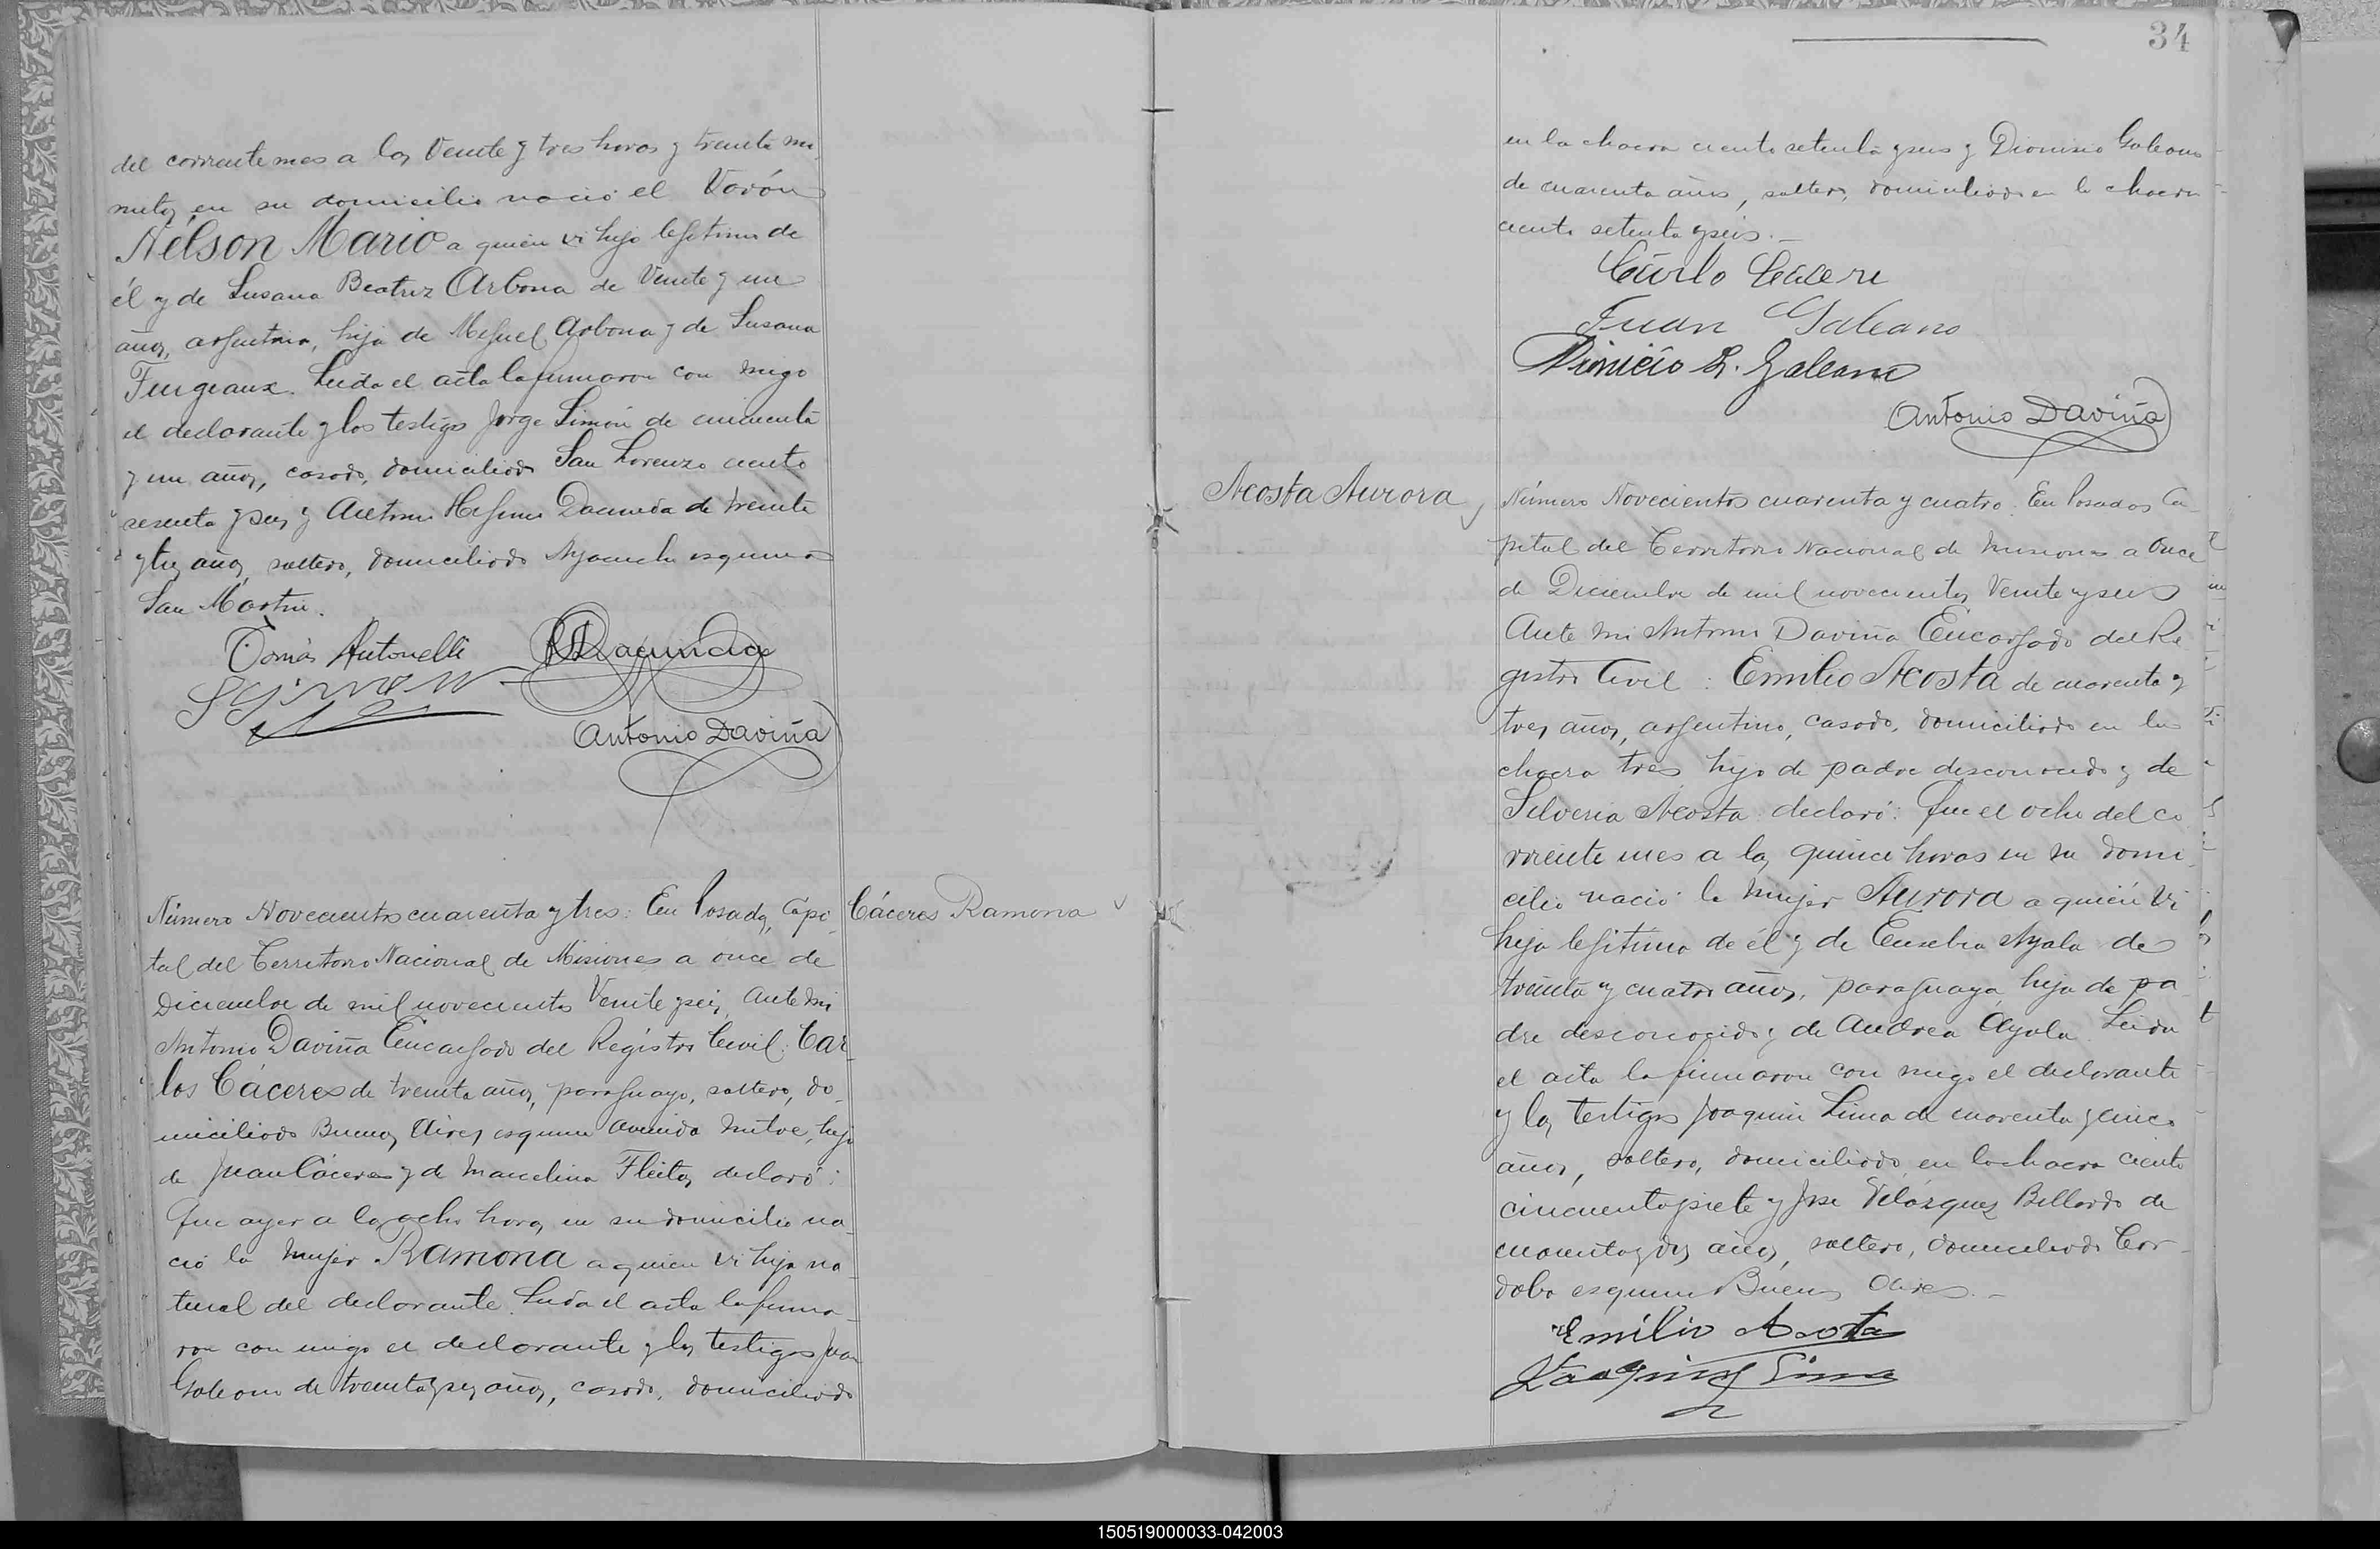 del corriente mes a las Veinte y tres horas y treinta mi-
nutos, en su domicilio nació el Varón
Nélson Mario a quien vi hijo lejitimo de
él y de Susana Beatriz Arbona de Veinte y un
años, arjentina, hija de Miguel Arbona y de Susana
Leida el acta la firmaron con migo
el declarante y los testigos Jorge Simón de cincuenta
y un años, casado, domiciliado San Lorenzo ciento
sesenta y seis y Antonio Dacunda de treinta
y tres años, soltero, domiciliado Ayacucho esquina
San Martin.
Tomás Antonelli
Antonio Daviña
Número Novecientos cuarenta y tres: En Posadas, Capi-
tal del Territorio Nacional de Misiones a once de
Diciembre de mil novecientos Veinte y seis, Ante mi
Antonio Daviña Encargado del Régistro Civil: Car-
los Cáceres de treinta años, paraguayo, soltero, do-
miciliado Buenos Aires esquina Avenida Mitre, hijo
de Juan Cáceres y de Marcelina Fleitas declaró:
Que ayer a las ocho horas, en su domicilio na-
ció la mujer Ramona a quien vi hija na-
tural del declarante. Leida el acta la firma-
ron con migo el declarante y los testigos Juan
Galeano de treinta y seis años, casado, domiciliado
Cáceres Ramona
34
en la chacra ciento setenta y seis y Dionisio Galeano
de cuarenta años, soltero, domiciliado en la chacra
ciento setenta y seis.
Carlo Cácere
Juan Galeano
Dionicio R. Galeano
Antonio Daviña
Acosta Aurora
Número Novecientos cuarenta y cuatro: En Posadas Ca-
pital del Territorio Nacional de Misiones a Once
de Diciembre de mil novecientos Veinte y seis
Ante mi Antonio Daviña Encargado del Re
gistro Civil: Emilio Acosta de cuarenta y
tres años, argentino, casado, domiciliado en la
chacra tres, hijo de padre desconocido y de
Silveria Acosta declaró: Que el ocho del co
rriente mes a las quince horas en su domi-
cilio nació la mujer Aurora a quién vi
hija lejitima de él y de Eusebia Ayala de
treinta y cuatro años, paraguaya, hija de pa
dre desconocido y de Andrea Ayala. Leida
el acta la firmaron con migo el declarante
y los testigos Joaquin Lima de cuarenta y cinco
años, soltero, domiciliado en la chacra ciento
cincuenta y siete y José Velázquez Bellardo de
cuarenta y dos años, soltero, domiciliado Cor-
doba esquina Buenos Aires.
Emilio Acosta
Joaquin Lima
150519000033-042003